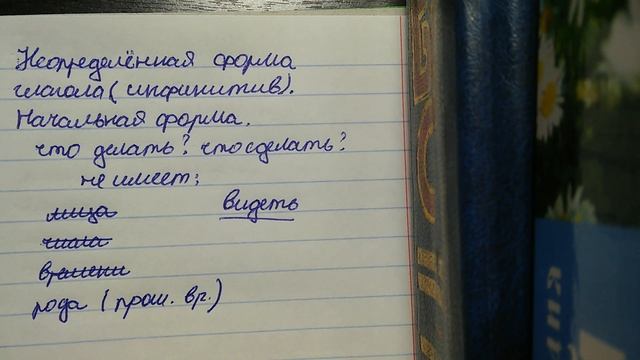 Неопределённая форма
глагола (инфинитив).
Начальная форма.
что делать? что сделать?
не имеет:
лица видеть
числа
времени
рода (прош. вр.)